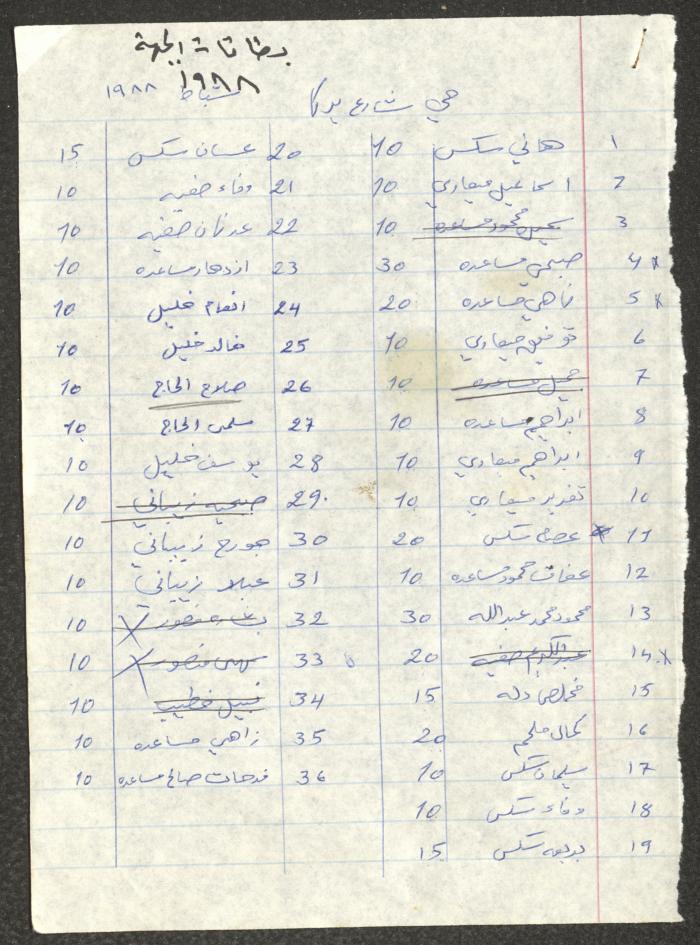 بطاقات الجبهة
١٩٨٨
شباط ١٩٨٨
حي شارع يركا
1 هاني سكس 10
2 اسماعيل ميعاري 10
3 محمود مساعده 10
4 x صبحي مساعده 30
5 x ناهي مساعده 20
6 توفيق ميعاري 10
7 جميل مساعده 10
8 ابراهيم مساعده 10
9 ابراهيم ميعاري 10
10 تغريد ميعاري 10
11 x عصام سكس 20
12 عفاف محمود مساعده 10
13 محمود محمد عبدالله 30
14 x عبدالكريم صفيه 20
15 مخلص دله 15
16 كمال ملحم 20
17 سليمان سكس 10
18 وفاء سكس 10
19 بديعه سكس 15
20 غسان سكس 15
21 وفاء صفيه 10
22 عدنان صفيه 10
23 ازدهار مساعده 10
24 انعام خليل 10
25 خالد خليل 10
26 صلاح الحاج 10
27 سلمى الحاج 10
28 يوسف خليل 10
29 صبحيه زيباني 10
30 جورج زيباني 10
31 عبلا زيباني 10
32 منصور 10
33 سهى منصور 10
34 نبيل خطيب 10
35 زاهي مساعده 10
36 فرحات صالح مساعده 10